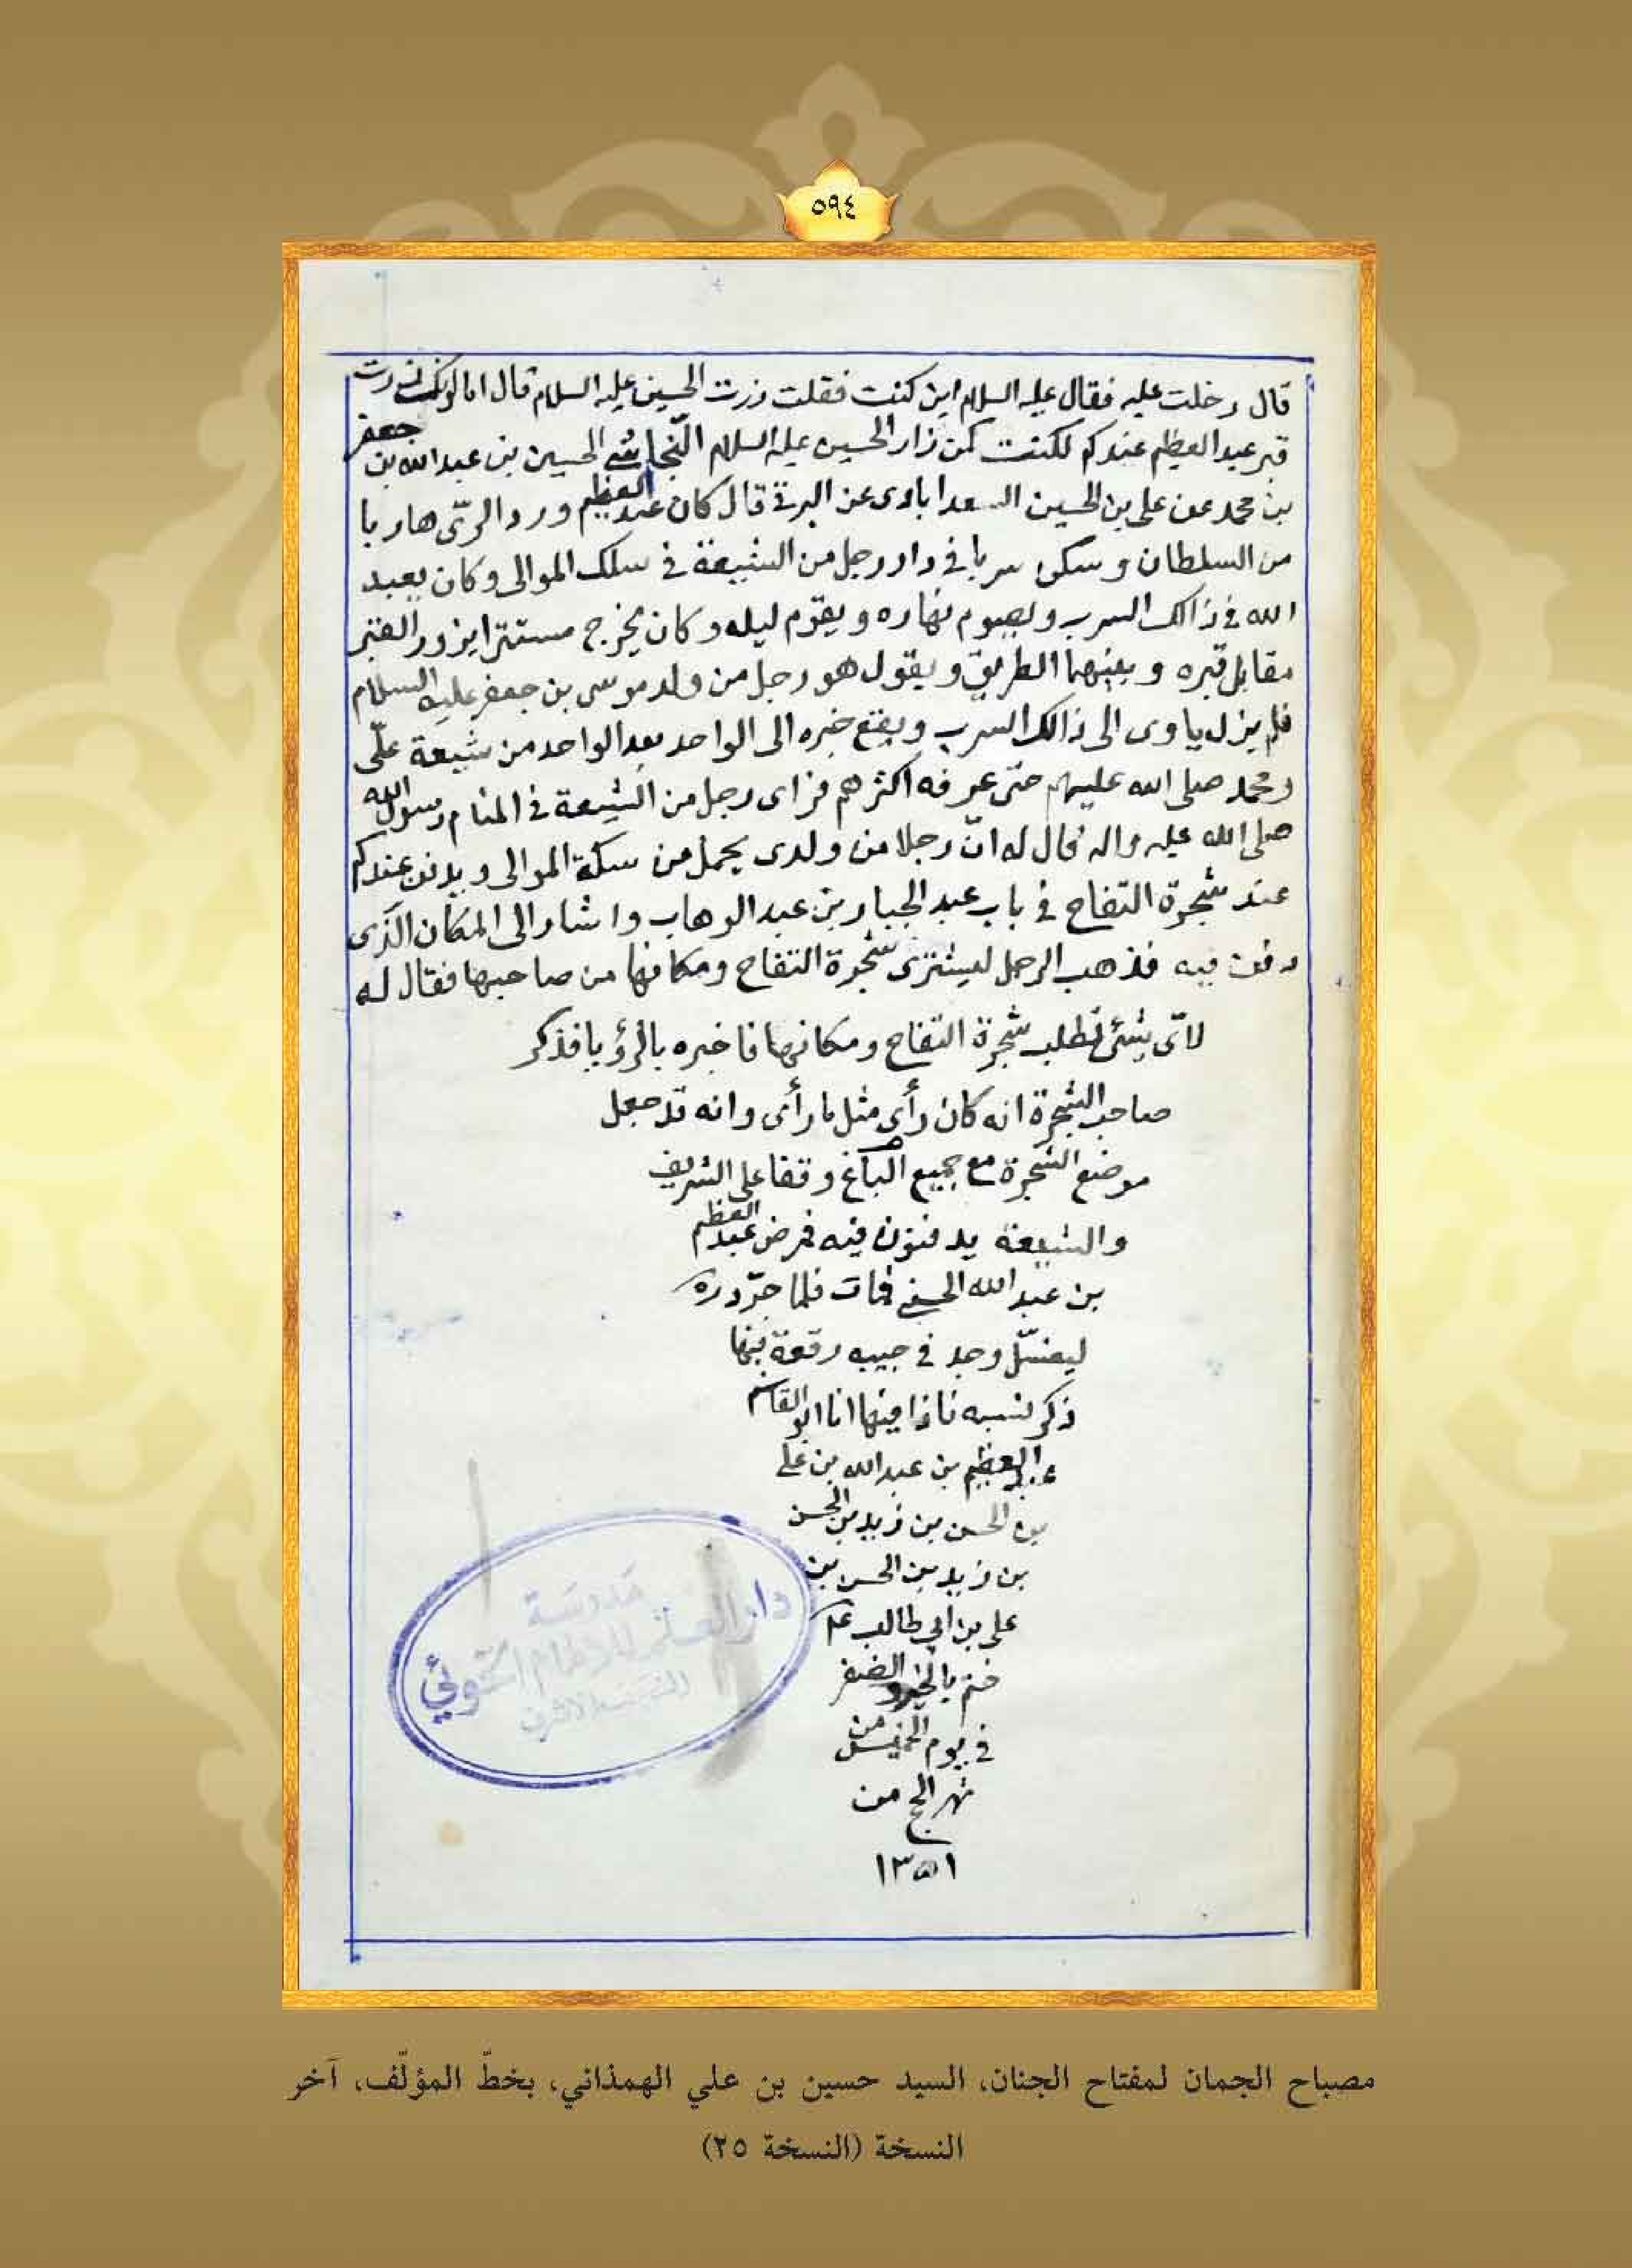 ٥٩٤
قال دخلت عليه فقال عليه السلام اين كنت فقلت زرت الحسين عليه السلام قال اما لو انك زرت
قبر عبد العظيم عندكم لكنت كمن زار الحسين عليه السلام النّجاشي الحسين بن عبد الله بن جعفر
بن محمد عن علي بن الحسين السعدابادى عن البرقي قال كان عبد العظيم ورد الرّى هاربا
من السلطان وسكن سربا في دار رجل من الشيعة في سلك الموالى وكان يعبد
الله في ذالك السرب ويصوم نهاره ويقوم ليله وكان يخرج مستترا يزور القبر
مقابل قبره وبينهما الطريق ويقول هو رجل من ولد موسى بن جعفر عليه السلام
فلم يزل ياوى الى ذالك السرب ويقع خبره الى الواحد بعد الواحد من شيعة على
ومحمد صلى الله عليهم حتى عرفه اكثرهم فراى رجل من الشيعة في المنام رسول الله
صلى الله عليه واله قال له انّ رجلا من ولدى يحمل من سكة الموالى ويدفن عندكم
عند شجرة التفاح في باب عبد الجبار بن عبد الوهاب واشار الى المكان الذى
دفن فيه فذهب الرجل ليشترى شجرة التفاح ومكانها من صاحبها فقال له
لاىّ شئ تطلب شجرة التفاح ومكانها فاخبره بالرؤيا فذكر
صاحب الشجرة انه كان رأى مثل ما رأى وانه قد جعل
موضع الشجرة مع جميع الباغ وقفا على الشريف
والشيعة يدفنون فيه فمرض عبد العظيم
بن عبد الله الحسني فمات فلما جرّدوه
ليغسّل وجد في جيبه رقعة فيها
ذكر نسبه فاذا فيها انا ابو القاسم
عبد العظيم بن عبد الله بن على
بن الحسن بن زيد بن الحسن
بن زيد بن الحسن بن
على بن أبي طالب ع
ختم بالخير
في يوم الخميس من
شهر من
١٣٥١
مدرسة
دار العلم للامام الخوئي
النجف الاشرف
مصباح الجمان لمفتاح الجنان، السيد حسين بن علي الهمذاني، بخطّ المؤلّف، آخر
النسخة (النسخة ٢٥)